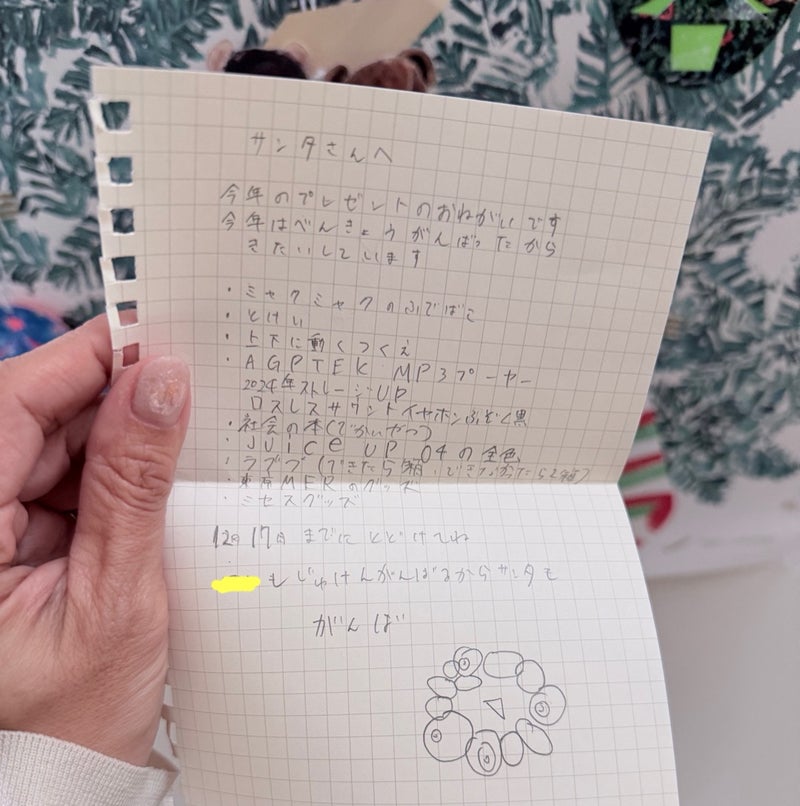 サンタさんへ
今年のプレゼントのおねがいです
今年はべんきょうがんばったから
きたいしています
・ミャクミャクのふでばこ
・とけい
・上下に動くつくえ
・AGPTEK MP3プーヤー
2024年ストレージUP
ロスレスサウンドイヤホンふぞく黒
・社会の本(でかいやつ)
・JUICE UP 04の全色
・ラブブ(できたら箱、できなかったら2個)
・東京MERのグッズ
・ミセスグッズ
12月17日までにとどけてね
もじゅけんがんばるからサンタも
がんば